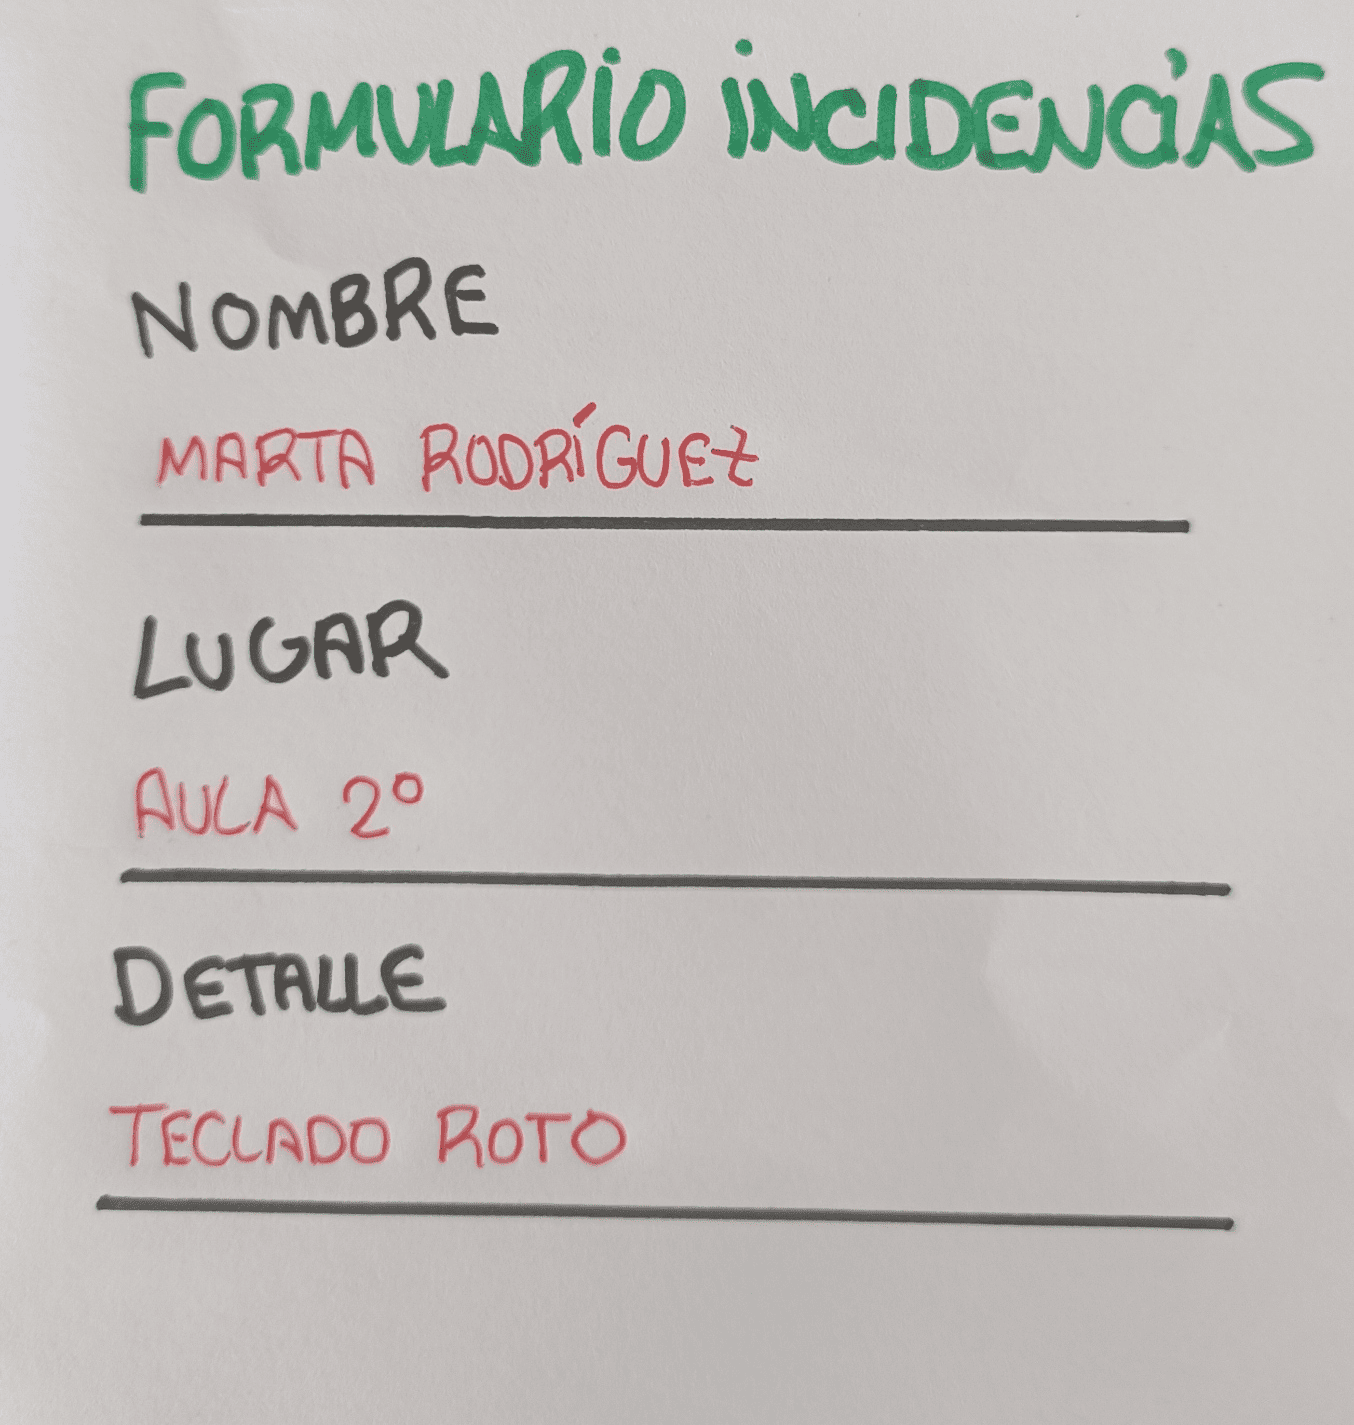 FORMULARIO INCIDENCIAS
NOMBRE
MARTA RODRÍGUEZ
LUGAR
AULA 2º
DETALLE
TECLADO ROTO